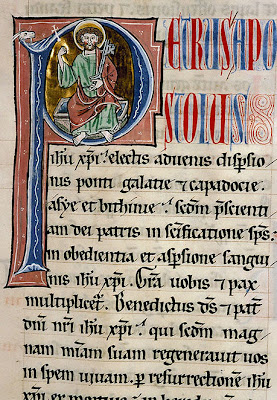 PETRUS APO
STOLUS
ihu xpi electis advenis dispsio
nis ponti galatie ⁊ capadocie
asye et bithinie scdm pscienti
am dei patris in scificatione sps
in obedientia et aspsione sangui
nis ihu xpi. Gra vobis ⁊ pax
multiplicet. Benedictus ds ⁊ pat
dni nri ihu xpi. qui scdm mag
nam miam suam regeneravit vos
in spem vivam. p resurrectionem ihu
xpi ex mortuis